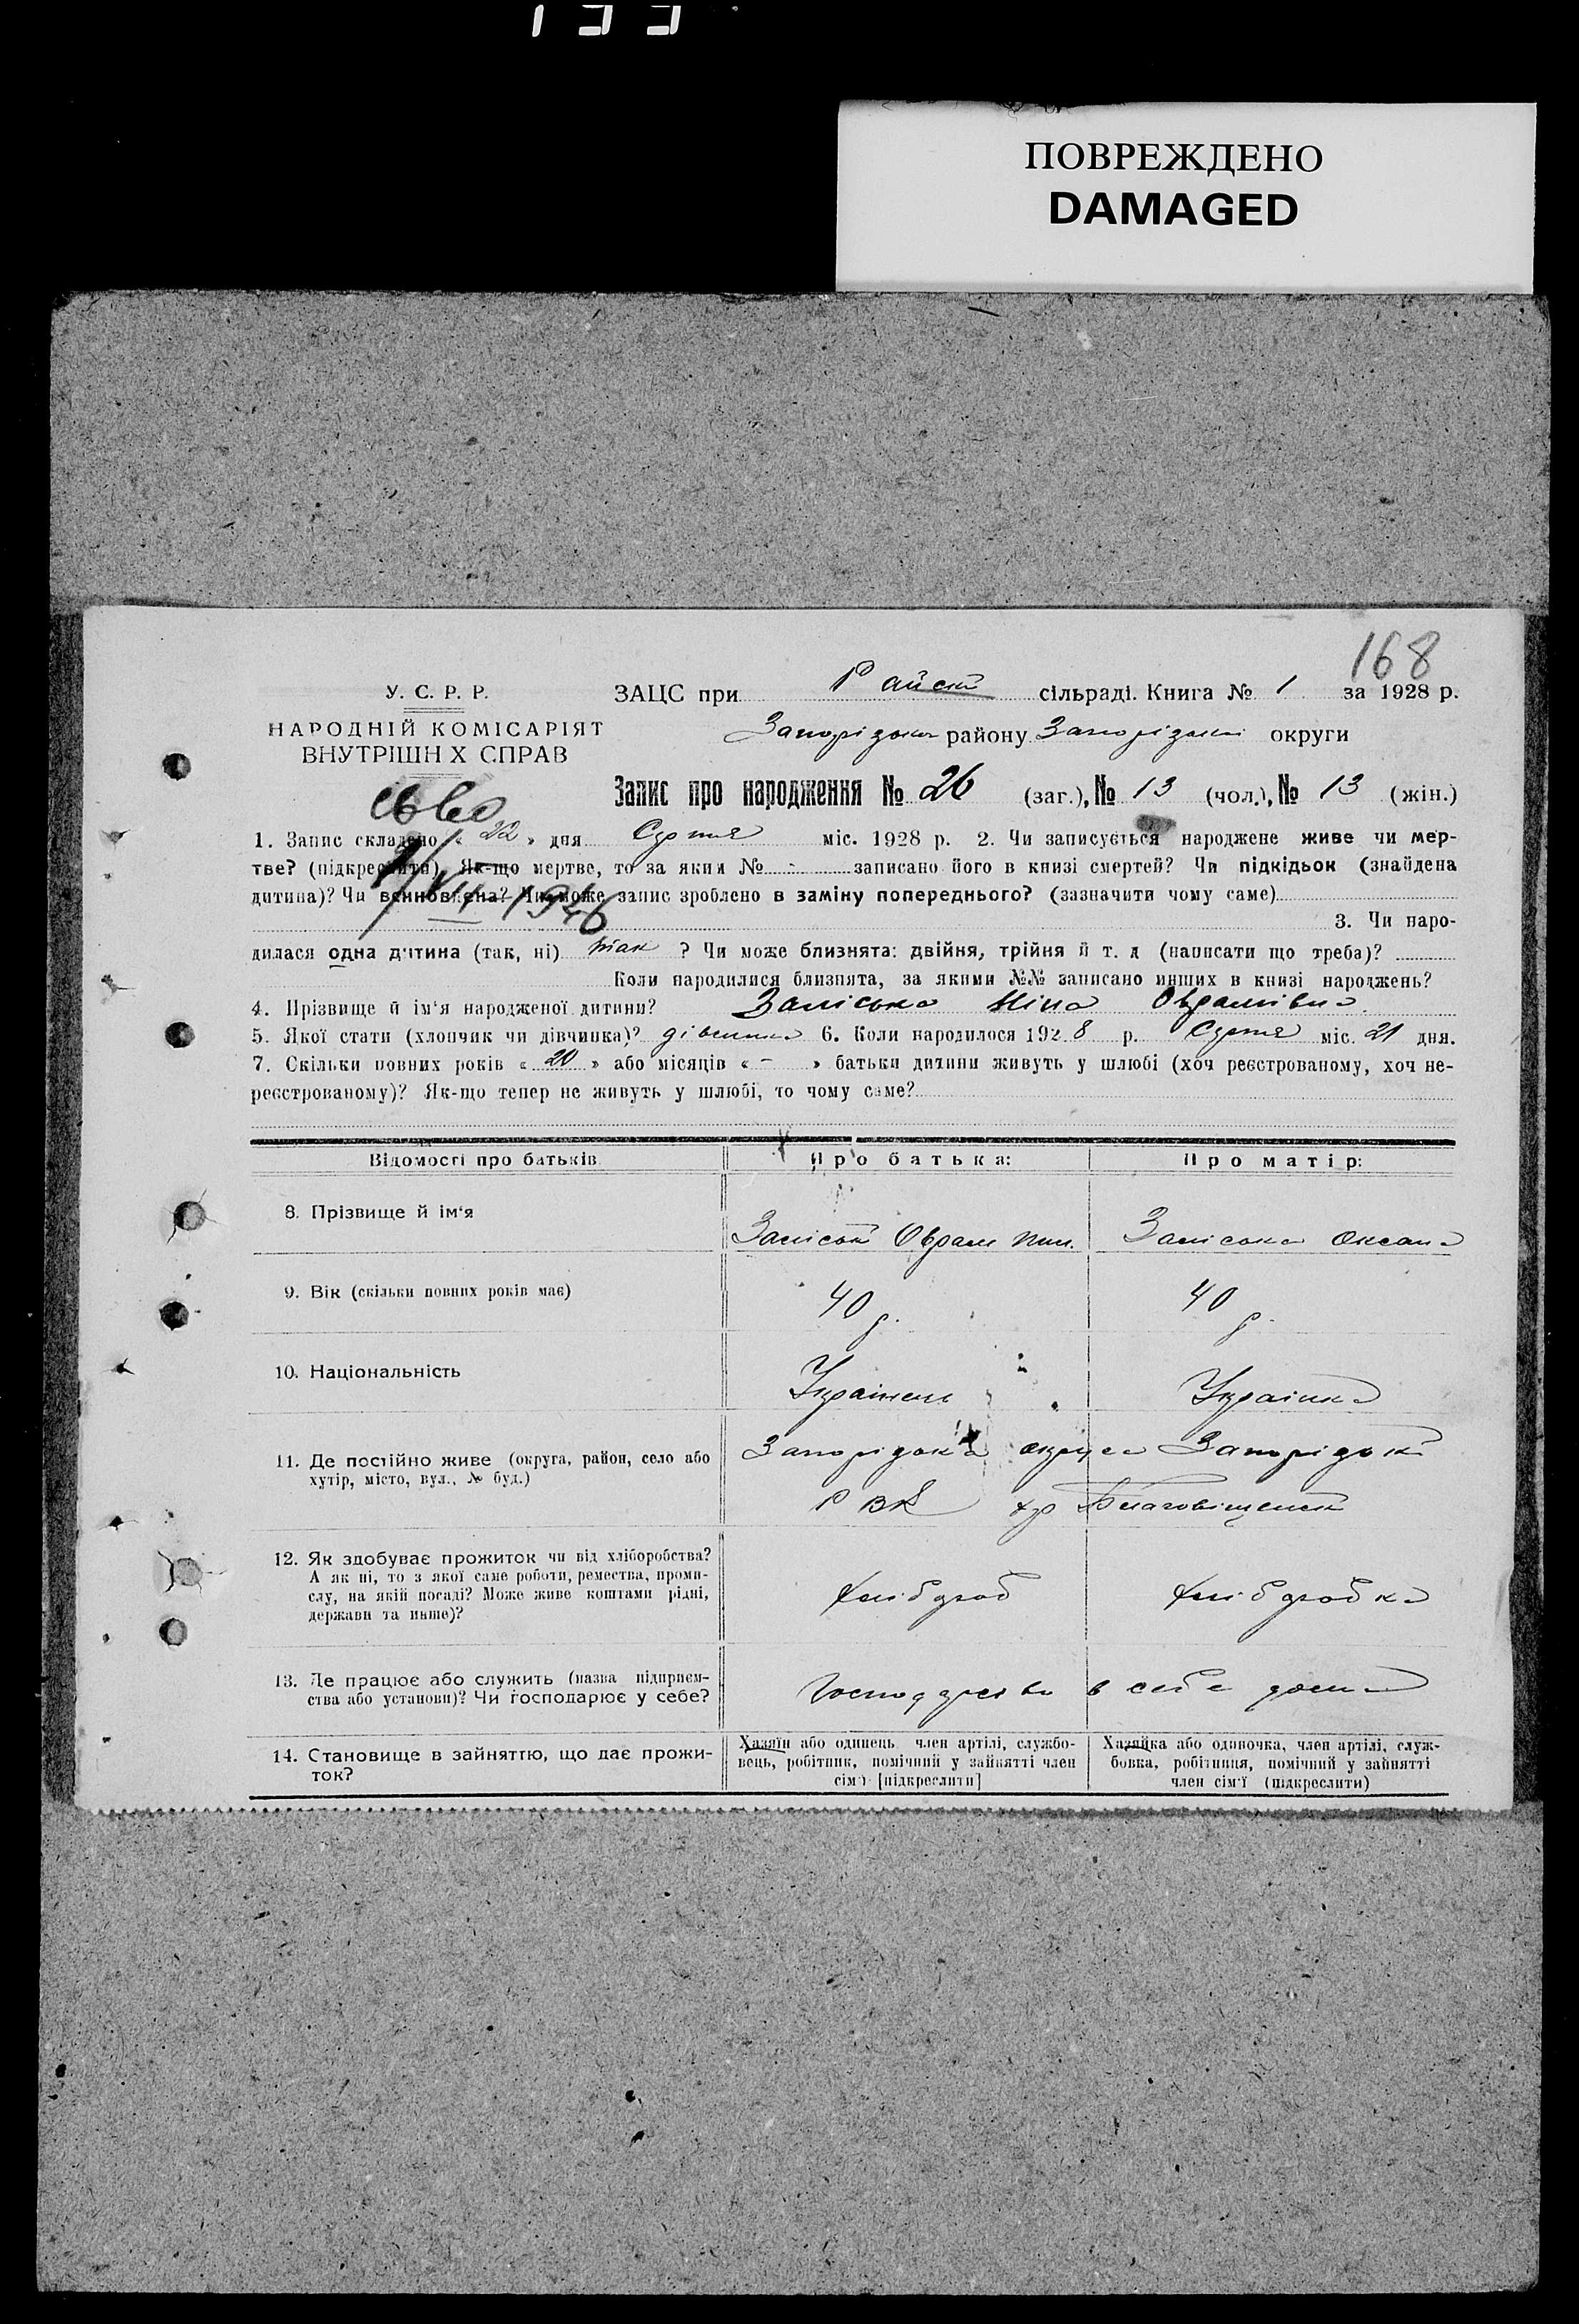 133
ПОВРЕЖДЕНО
DAMAGED
168
У. С. Р. Р.
НАРОДНІЙ КОМІСАРІЯТ
ВНУТРІШН Х СПРАВ
ЗАЦС при Райскій сільраді. Книга № 1 за 1928 р.
району округи
Запис про народження № 26 (заг.), № 13 (чол.), № 13 (жін.)
1. Запис складено « 22 » дня Серпня міс. 1928 р. 2. Чи записується народжене живе чи мер-
тве? (підкреслити). Як-що мертве, то за яким № - записано його в книзі смертей? Чи підкідьок (знайдена
дитина)? Чи може запис зроблено в заміну попереднього? (зазначити чому саме)
1946
3. Чи наро-
дилася одна дитина (так, ні) так ? Чи може близнята: двійня, трійня й т. д (написати що треба)?
Коли народилися близнята, за якими №№ записано инших в книзі народжень?
4. Прізвище й ім'я народженої дитини? Заліська Ніна Оврамівна
5. Якої стати (хлопчик чи дівчинка)? дівчинка 6. Коли народилося 1928 р. Серпня міс. 21 дня.
7. Скільки повних років « 20 » або місяців « - » батьки дитини живуть у шлюбі (хоч реєстрованому, хоч не-
реєстрованому)? Як-що тепер не живуть у шлюбі, то чому саме?
Відомості про батьків
Про батька:
Про матір:
8. Прізвище й ім'я
Заліський Оврам
Заліська Оксана
9. Вік (скільки повних років має)
40 р.
40 р.
10. Національність
Українець
Українка
11. Де постійно живе (округа, район, село або
хутір, місто, вул., № буд.)
Запорізька округа Запорізький
РВК хр Благовіщенський
12. Як здобуває прожиток чи від хліборобства?
А як ні, то з якої саме роботи, ремества, проми-
слу, на якій посаді? Може живе коштами рідні,
держави та инше)?
хлібороб
хліборобка
13. Де працює або служить (назва підприєм-
ства або установи)? Чи господарює у себе?
Господарство в себе дома
14. Становище в зайняттю, що дає прожи-
ток?
Хазяїн або одинець член артілі, службо-
вець, робітник, помічний у зайнятті член
сім'ї [підкреслити]
Хазяйка або одиночка, член артілі, служ-
бовка, робітниця, помічний у зайнятті
член сім'ї (підкреслити)